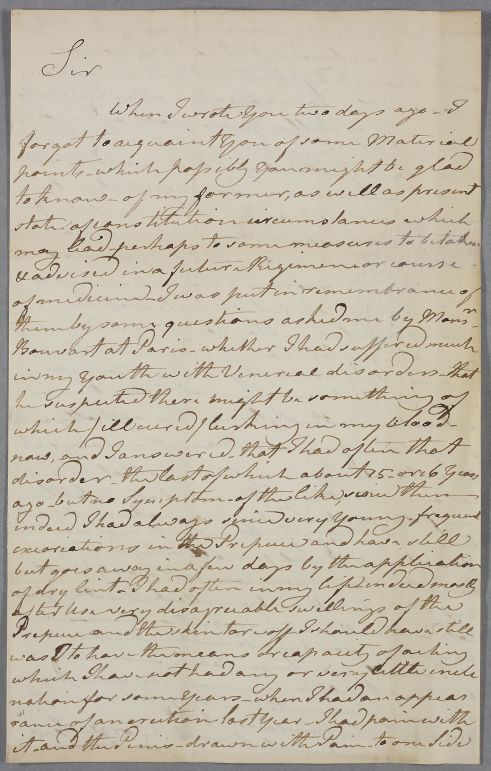 Sir
When I wrote you two days ago - I
forgot to acquaint You of some Material
points - which possibly You might be glad
to know - of my former, as well as present
state of constitution circumstances which
may lead perhaps to some measures to be taken
& advised in a future Regimene or course
of medicine - I was put in remembrance of
them by some questions asked me by Monsr
Bouvart at Paris - whether I had suffered much
in my Youth with Venereal disorders - that
he suspected there might be something of
which / ill cured / lurking in my blood -
now, and I answered - that I had often that
disorder - the last of which about 15 - or 16 Years
ago - but no Symptom - of the like since then -
indeed I had always since very Young - frequent
excoriations in the Prepuce and have still
but goes away in a few days by the application
of dry lint - I had often in my life indeed mostly
after Use a very disagreeable swellings of the
Prepuce - and the skin tore off I should have still
was I to have the means or capacity of acting
which I have not had any or very little incli
nation for some Years - when I had an appea
rance of an erection last year - I had pain with
it - and the Penis - drawn with Pain - to one Side